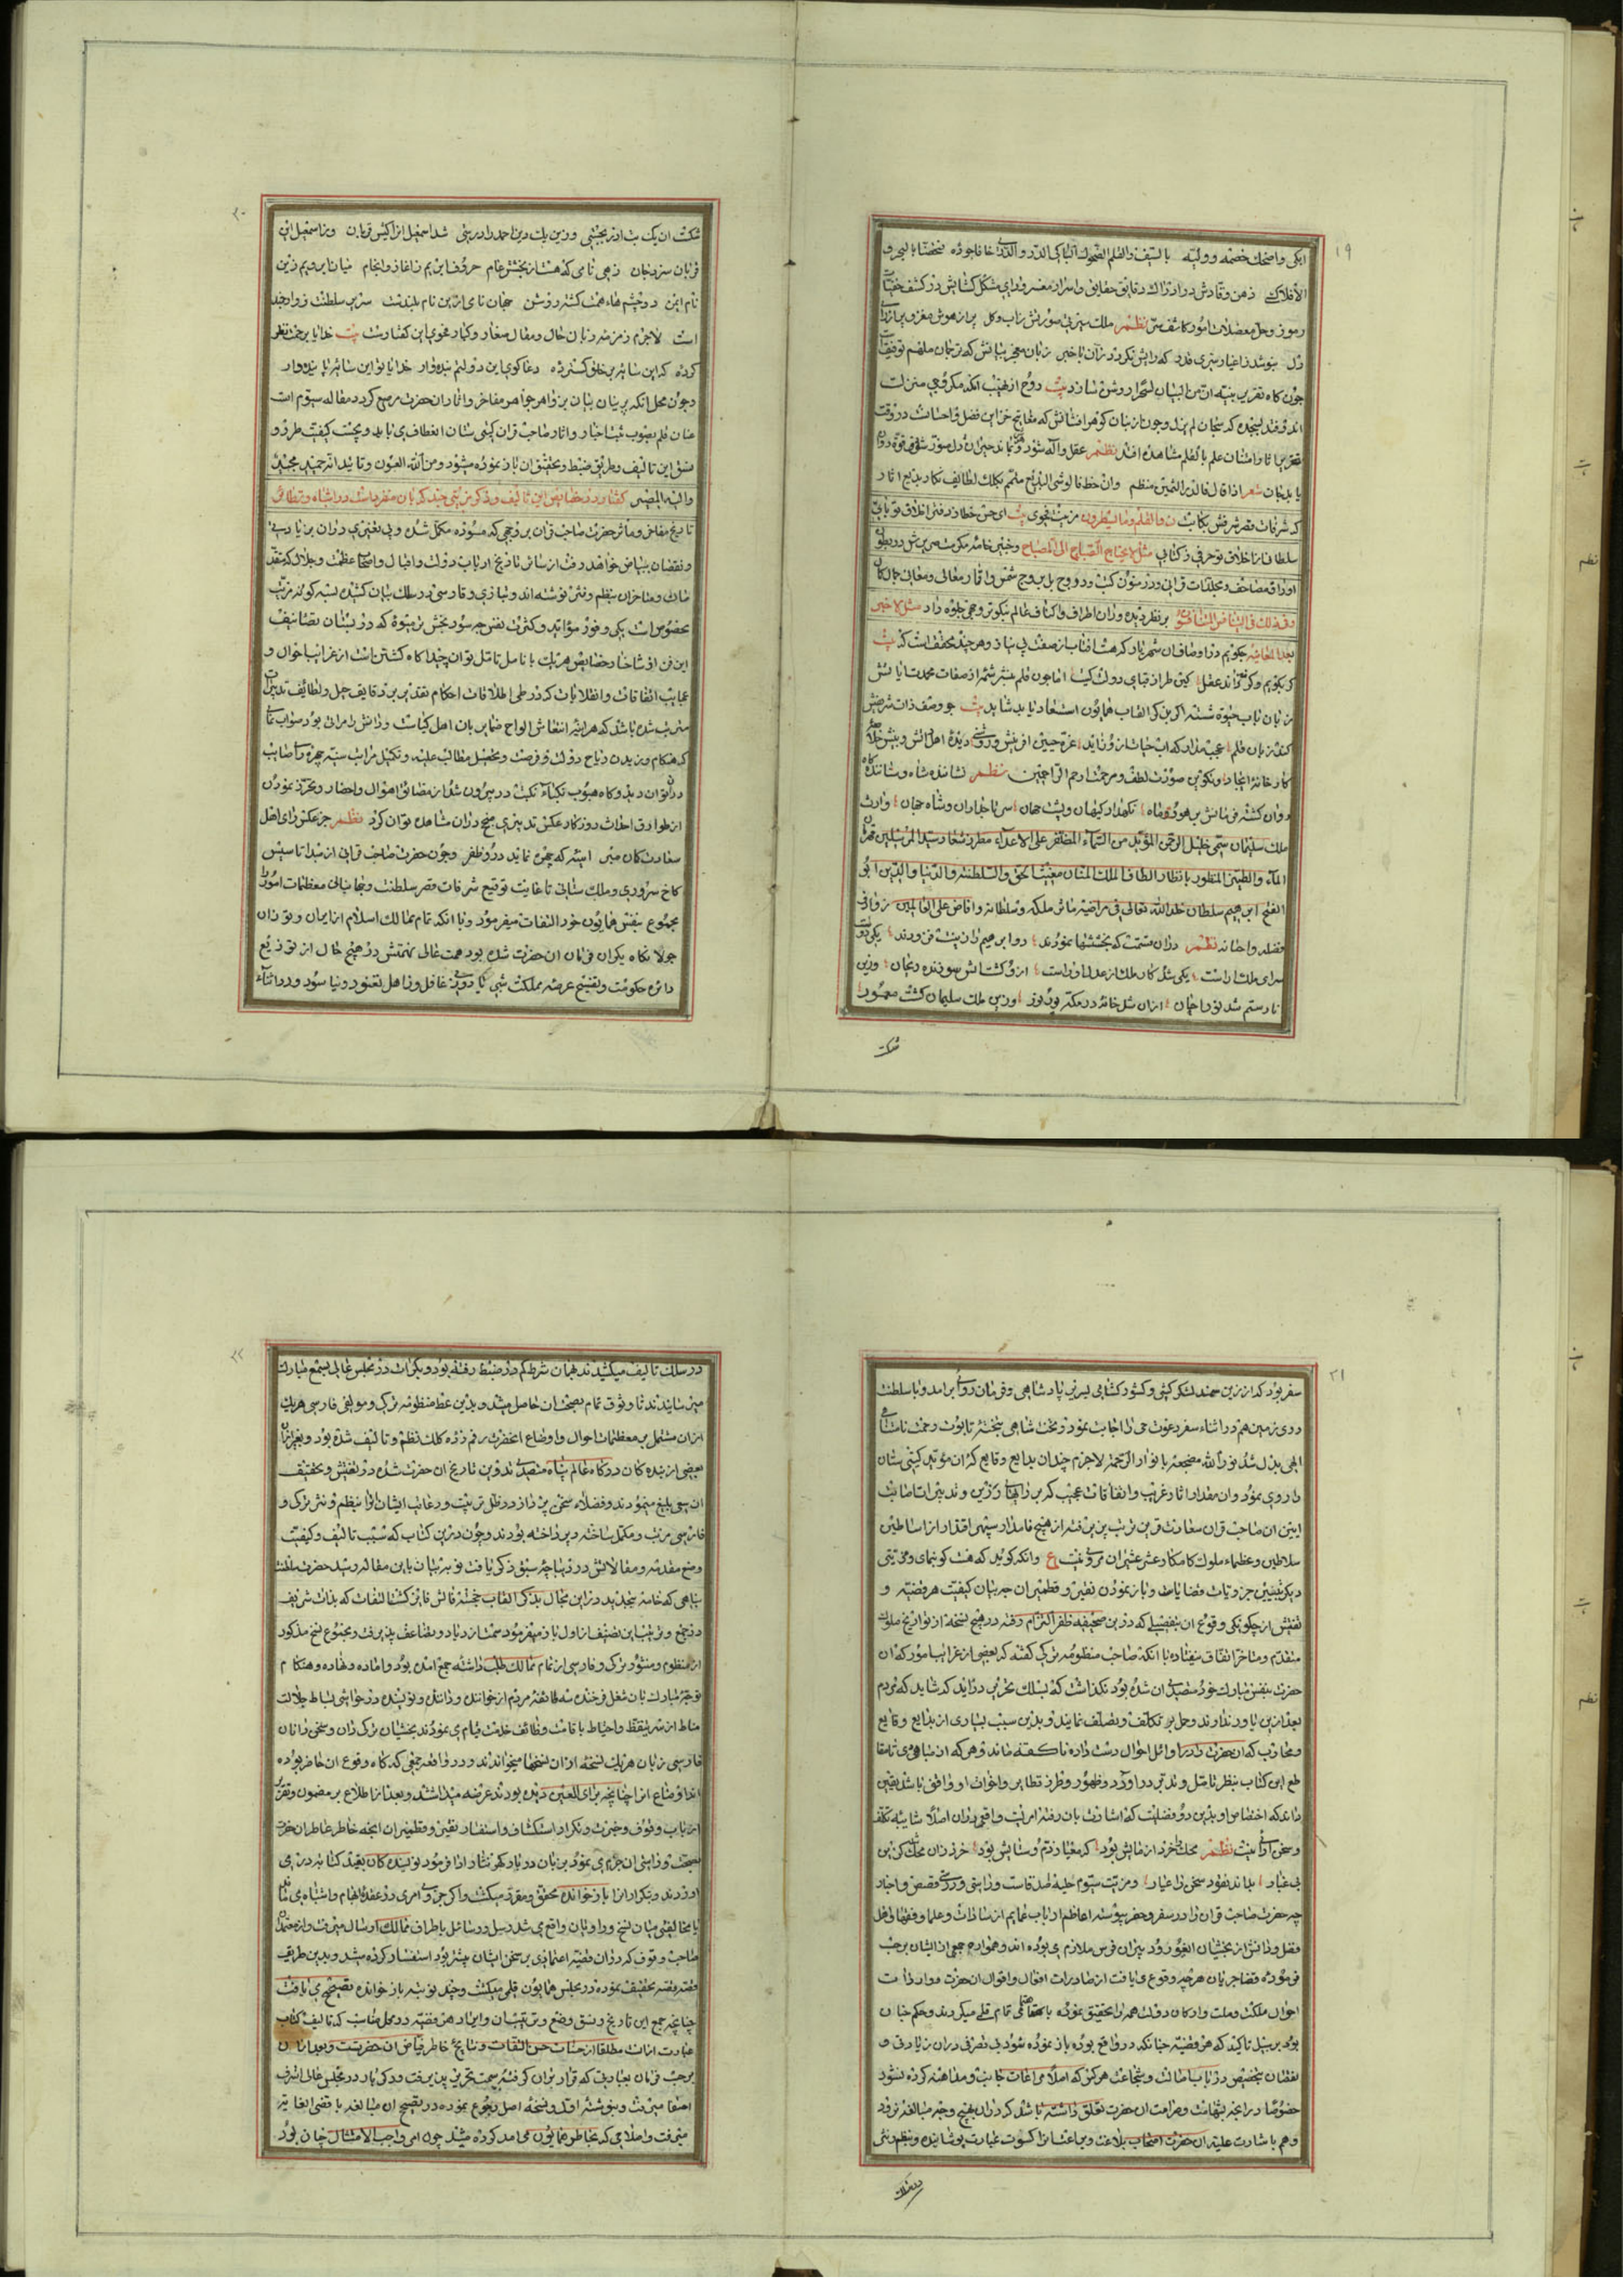 ۱۹
ابکی واضحک خصمه وولیه بالسیف والقلم الضحوک الباکی الدر والدری خافا جوده فتحصنا بالبحر و
الافلاک ذهن وقادش در ادراک دقایق حقایق واسرار مغیب ورای مشکل کشایش در کشف خفیات
رموز وحل معضلات امور کاشف سر نظم ملک
دل بنوشد زاغیار سری قدر که رایش نکردد زان باخبر زبان معجز بیانش که ترجمان ملهم توفیق است
چون کاه تقریر بیت دوح
اند وقند لبخنده که سبحان لم یزل وجون از بنان کوهر افشانش که مفاتیح خزاین فضل واحسانست در وقت
تحریر علم بالقلم مشاهده افتد نظم عقل واله شود
یابد بنان شعر اذا قال فالدر الثمین منظم وان خط فالوشی البدیع منمنم بکلک لطایف نکار بدایع اثار
که شرفات قصر شرفش بکتابت ن والقلم وما یسطرون مزین بفحوی بیت ای حق خط
سلطان از اخلاق تو حرفی ز کتابی مثل لا یحتاج الصباح الی المصباح وچنین خامه
اوراق مصاحف ومجلدات قرانی ودر متون کتب
وفی ذلک فلیتنافس المتنافسون بر نظر دیده وران اطراف واکناف عالم نیکوتر وجهی جلوه داد مثل لا خبر
بعد المعاینه جکویم در اوصاف ان شهریار که هست افتاب از صفت بی نیاز وهر چند محقق است که بیت
کر بکویم وکر نه داند عقل کین طراز قبای دولت کیست اما چون قلم منشر شمه از صفات محمدت ایاتش
زبان باب حیوة شسته اکر بذکر القاب همایون استسعاد یابد شاید بیت جو وصف ذات شریفش
کند زبان قلم عجب مدار که اب حیات ازو زاید غره جبین افرینش وروشنی دیده اهل دانش وبینش خلاصه
کارخانه ایجاد وتکوین صورت لطف ومرحمت ارحم الراحمین نظم نشاننده شاه وستاننده کاه
روان کشته فرمانش بر هور وماه نکهدار کیهان وپشت جهان سر تاجداران وشاه جهان وارث
ملک سلیمان سمی خلیل الرحمن الموید من السماء المظفر علی الاعداء
الماء والطین المنظور بانظار الطاف الملک المنان مغیث الحق والسلطنه والدنیا والدین ابو
الفتح ابرهیم سلطان خلد الله تعالی فی مراضیه ماثر ملکه وسلطانه وافاض علی العالمین زوارف
فضله واحسانه نظم دران سمت که بخششها نمودند دو ابرهیم را زینت فزودند یکی دولت
سرای ملک اراست یکی شد کار ملک از عدل او راست ازو کشت اتش سوزنده ریحان وزین
نار ستم شد نور احسان ازان شد خانه در مکه پر نور وزین ملک سلیمان کشت معمور
شکست
۲۰
شکست ان یک بت ازر بچستی وزین یک دین احمد را درستی شد اسمعیل ازا کیش قربان وز اسمعیل
قربان سزد جان زهی نامی که هست از بخشش عام حروف ابرهیم را اغاز وانجام میان ابر ویم زین
نام ایمن دو چشم هاء همت کشته روشن جهان نامی ازین نام بلندست سزیر سلطنت زو ارجمند
است لاجرم زمزمه زبان حال ومقال صغار وکبار فحوی این کفتارست بیت خدایا برحمت نظر
کرده که این سایه بر خلق کسترده دعا کوی این دولتم بنده وار خدایا تو این سایه پاینده دار
وچون محل انکه پرنیان بیان بزواهر جواهر مفاخر واثار ان حضرت مرصع کردد مقاله سیوم است
عنان قلم بصوب ثبت اخبار واثار صاحب قران کیتی ستان انعطاف می یابد ونخست کیفیت طرز و
نسق این تالیف وطریق ضبط وتحقیق ان باز نموده میشود ومن الله العون وتائید انه حمید مجید
والیه المصیر کفتار در خصایص این تالیف وذکر مزیتی چند که بان متفرد است در اشباه ونظائر
تاریخ مفاخر ومآثر حضرت صاحب قران بر وجهی که مسوده مکمل شده وبی تغییری دران بزیادت
ونقصان ببیاض خواهد رفت از سائر تاریخ ارباب دولت واقبال واصحاب عظمت وجلال که متقد
مان ومتاخران بنظم ونثر نوشته اند وتازی وفارسی در سلک بیان کشیده بسه کونه مزیت
مخصوص است یکی وفور فواید وکثرت نفع چه سود بخش تر میوه که در بستان تصانیف
این فن از شاخسار خصایص هریک با نامل تامل توان چید اکاه کشتن است از غرایب احوال و
عجایب اتفاقات وانقلابات که در طی اطلاقات احکام تقدیر بر دقایق جمل ولطائف تدبیرات
مترتب شده باشد که هر اینه انتعاش الواح ضمایر بان اهل کیاست ودانش را مرات بود صواب نمای
که هنکام وزیدن ریاح دولت وفرصت وتحصیل مطالب علیه وتکمیل مراتب سنیه چهره رای صائب
دران توان دید وکاه هبوب نکباء نکبت در بیرون شد از مضائق اهوال واخطار وتحرز نمودن
از طوارق احداث روزکار عکس تدبیر منجح دران مشاهده توان کرد نظم جز عکس رای اهل
سعادت کمان مبر اینه که چهره نماید درو ظفر وچون حضرت صاحب قرانی از مبدا تاسیس
کاخ سروری وملک ستانی تا غایت توقیع شرفات قصر سلطنت وجهانبانی معظمات امور
مجموع بنفس همایون خود التفات میفرمود وبا انکه تمام ممالک اسلام از ایران وتوران
جولانکاه یکران فرمان ان حضرت شده بود همت عالی نهمتش در هیچ حال از توزیع
دائره حکومت وتفسیح عرصه مملکت شبی تا روزی غافل وذاهل نغنود ونیاسود ودر اثناء
۲۱
سفر بود که از زین سمند لشکر کشی وکشور کشایی بسریر پادشاهی وفرمان روائی برامد وباسلطنت
روی زمین هم در اثناء سفر دعوت حق را اجابت نمود وتخت شاهی بتخته تابوت ورحمت نامتناهی
الهی بدل شد نور الله مضجعه بانوار الرحمه لاجرم چندان بدایع وقایع که ان موید کیتی ستان
را روی نمود وان مقدار اثار غریب واتفاقات عجیب که بر رایهاء رزین وتدبیرات صایب
ایین ان صاحب قران سعادت قرین ترتیب پذیرفته از هیچ نامدار سپهر اقتدار از اساطین
سلاطین وعظماء ملوک کامکار عشر عشیر ان مروی نیست ع وانکه کوید که هست کو بنمای ومزیتی
دیکر تبیین جزویات قضایاست وباز نمودن نقیر وقطمیر ان چه بیان کیفیت هر قضیه و
تفتیش از چکونکی وقوع ان بتفصیلی که درین صحیفه ظفر التزام رفته در هیچ نسخه از تواریخ ملوک
متقدم ومتاخر اتفاق نیفتاده با انکه صاحب منظومه ترکی کفته که بعضی از غرایب امور که ان
حضرت بنفس مبارک خود متصدی ان شده بود نکذاشت که بسلک تحریر دراید که شاید که مردم
بعد ازین باور ندارند وحمل بر تکلف وتصلف نمایند وبدین سبب بسیاری از بدایع وقایع
ومحاربت که ان حضرت را در اوائل احوال دست داده ناکفته ماند وهر که از مبادی تا مقا
طع این کتاب بنظر تامل وتدبر دراورد
داند که اختصاص او بدین دو فضیلت که اشارت بان رفته امریست واقعی ودران اصلا شایبه تکلف
وسخن ارائی نیست نظم محک خرد ازمایش بود که معیار ذم وستایش بود خرد زان محک کرین
بی غبار بداند نقود سخن را عیار ومزیت سیوم حلیه صدقست وراستی ودرستی قصص واخبار
چه حضرت صاحب قران را در سفر وحضر پیوسته اعاظم ارباب عمایم از سادات وعلما وفقها واهل
فضل ودانش از بخشیان ایغور ودبیران فرس ملازم می بوده اند وهمواره جمعی از ایشان برحسب
فرموده قضا جریان هرچه وقوع می یافت از صادرات افعال واقوال ان حضرت وواردات
احوال مملکت وملت وارکان دولت همه را تحقیق نموده باهتمامی تمام قلمی میکردند وحکم چنان
بود بر سبیل تاکید که هر قضیه چنانکه در واقع بوده باز نموده شود بی تصرفی دران بزیادتی و
نقصان بتخصیص در باب اصالت وشجاعت هرکس که اصلا مراعات جانب ومداهنه کرده نشود
خصوصا درانچه بشهامت وصرامت ان حضرت تعلق داشته باشد که دران بهیچ وجه مبالغه نرود
وهم باشارت علیه ان حضرت اصحاب بلاغت وبراعت انرا کسوت عبارت پوشانیده وبنظم ونثر
در سلک
۲۲
در سلک تالیف میکشیدند بهمان شرط که در ضبط رفته بود وبکرات در مجلس عالی بسمع مبارک
میرسانیدند تا وثوق تمام بصحت ان حاصل میشد وبدین نمط منظومه ترکی ومولفی فارسی هریک
ازان مشتمل بر معظمات احوال واوضاع انحضرت رقم زده کلک نظم وتالیف شده بود وبغیر ازان
بعضی از بندکان درکاه عالم پناه متصدی تدوین تاریخ ان حضرت شده در تفتیش وتحقیق
ان سعی بلیغ مینمودند وفضلاء سخن پرداز در ظل تربیت ورعایت ایشان انرا بنظم ونثر ترکی و
فارسی مرتب ومکمل ساخته وپرداخته بودند وچون درین کتاب که سبب تالیف وکیفیت
وضع مقدمه ومقالاتش در دیباچه سبق ذکر یافت نوبت بیان باین مقاله رسید حضرت سلطنت
پناهی که خامه سخن پرداز این مجال بذکر القاب خجسته فالش فایز کشت التفات که بذات شریف
در جمع وترتیب این تصنیف از اول باز میفرمود سمت ازدیاد وتضاعف پذیرفت ومجموع نسخ مذکور
از منظوم ومنثور ترکی وفارسی از تمام ممالک طلب داشته جمع امده بود واماده ونهاده وهنکام
توجه مبارک بان شغل فرخنده سه طائفه مردم از خوانندکان وداننده ونویسنده در حواشی بساط جلالت
مناط از سر تیقظ واحتیاط باقامت وظائف خدمت قیام می نمودند بخشیان ترکی دان وسخن دانان
فارسی زبان هریک نسخه ازان نسخها میخواندند ودر واقعه جمعی که کاه وقوع ان حاضر بوده
اند اوضاع انرا چنانچه برای العین دیده بودند عرضه میداشتند وبعد از اطلاع بر مضمون وتقریر
ارباب وقوف وخبرت وتکرار استکشاف واستفسار نقیر وقطمیر ان انچه خاطر عاطر ان حضرت
بصحت وراستی ان جزم می نمود بر زبان دربار کهر نثار ادا فرمود نویسندکان بقید کتابت درمی
اوردند وبتکرار انرا باز خوانده محقق ومقرر میکشت واکر جزوی امری در عقده ابهام واشتباه می ماند
یا مخالفتی میان نسخ وراویان واقع می شد رسل ورسائل باطراف ممالک ارسال میرفت واز معتمدان
صاحب وقوف که دران قضیه اعتمادی بر سخن ایشان بیشتر بود استفسار کرده میشد وبدین طریقه
قضیه قضیه تحقیق نموده در مجلس همایون قلمی میکشت وچند نوبت باز خوانده تصحیح می یافت
چنانچه جمع این تاریخ ونسق وضع وترتیبش وایراد هر قضیه در محل مناسب که تالیف کتاب
عبارت ازانست مطلقا از حسنات حسن التفات ونتایج خاطر فیاض ان حضرتست وبعد ازان
برحسب فرمان بعبارتی که قرار بران کرفته بسمت تحریر پذیرفت ودیکر بار در مجلس عالی بشرف
اصغا میرفت وبنوشته اول ونسخه اصل رجوع نموده در تصحیح ان مبالغه باقصی الغایة
میرفت واصلاحی که بخاطر همایون می امد کرده میشد چون امر واجب الامتثال چنان بود